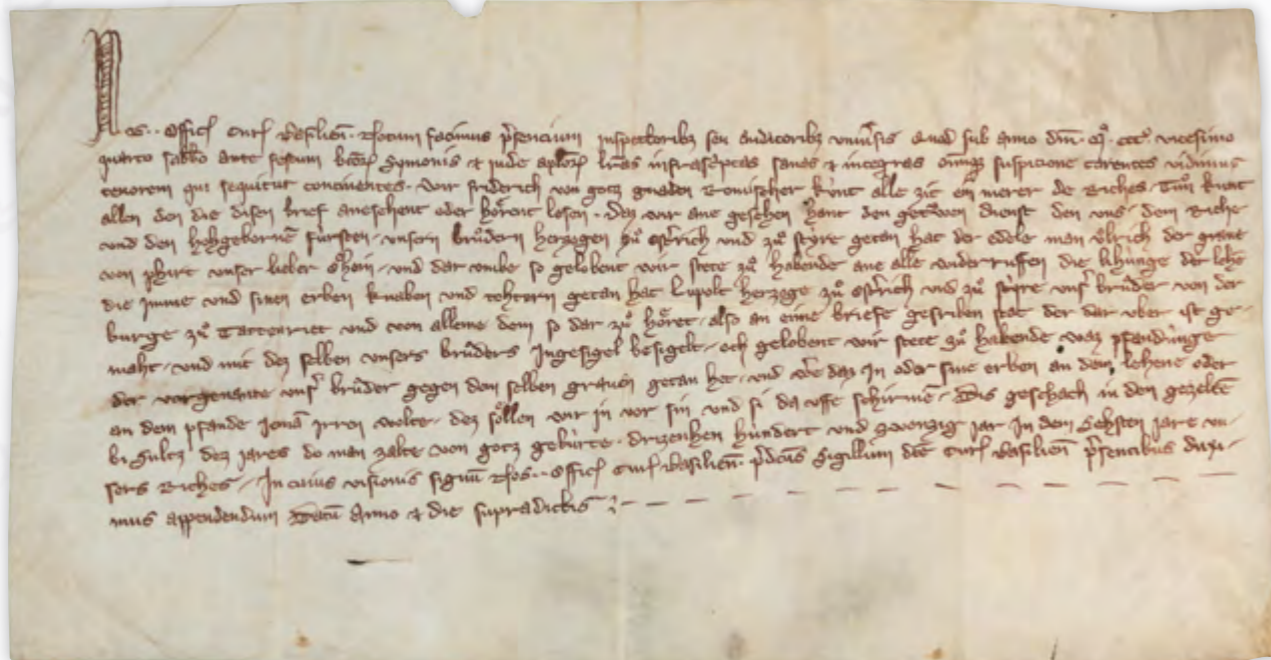 Nos .. Offic̄ Curͤ Basilien̄. Notum facimus p̄sencium inspectoribꝫ seu auditoribꝫ vniu͛sis Quod sub anno dn̄i. mͦ. cccͦ. vicesimo
quarto sabb̄o ante festum beatoꝝ Symonis & Jude apl̓oꝝ lr̄as infrasc͛ptas sanas & integras om̄iqꝫ suspicione carentes vidimus
tenorem qui sequitur continentes. Wir friderich von gotz gnaden Romischer kv́nt alle zit ein merer de Riches. Tůn kunt
allen den die disen brief ansehent oder hoͤrent lesen. Daz wir ane gesehen hant den getrúwen dienst den vns. dem Riche
vnd den hohgebornē fúrsten. vnsern brůdern herzogen zů ostͥrich vnd zů styre getan hat der edele man vͦlrich der graue
von phirt vnser lieber oͤhein. vnd dar vmbe so gelobent wir stete zů habende ane alle widerruͤffen die lihunge der lehē
die imme vnd sinen erben knaben vnd tohtern getan hat Lúpolt herzoge zů ostͥrich vnd zů stýre vnsͥ brůder von der
burge zů Tattenriet vnd von alleme dem so dar zů hoͤret. also an eime briefe gesriben stat der dar vber ist ge-
maht. vnd mit dez selben vnsers brůders Jngesigel besigelt. och gelobent wir stete zů habende waz pfandúnge
der vorgenante vnsͥ brůder gegen dem selben grauen getan het. vnd wͥe daz in oder sine erben an dem lehene oder
an dem pfande iemā irren wolte. dez soͤllen wir in vor sin vnd si da uffe schirmē. Dis geschach in den gezeltē
bi Sultz dez jares do man zalte von gotz gebúrte. drizenhen hundert vnd zwenzig jar. Jn dem Sehsten jare vn-
sers Riches. Jn cuius visionis signū Nos .. Offic̄ Curͤ Basilien̄. p̄dc̄us Sigillum dc̄e Curͤ Basilien̄ p̄sentibus duxi-
mus appendendum Datū Anno & die supradictis